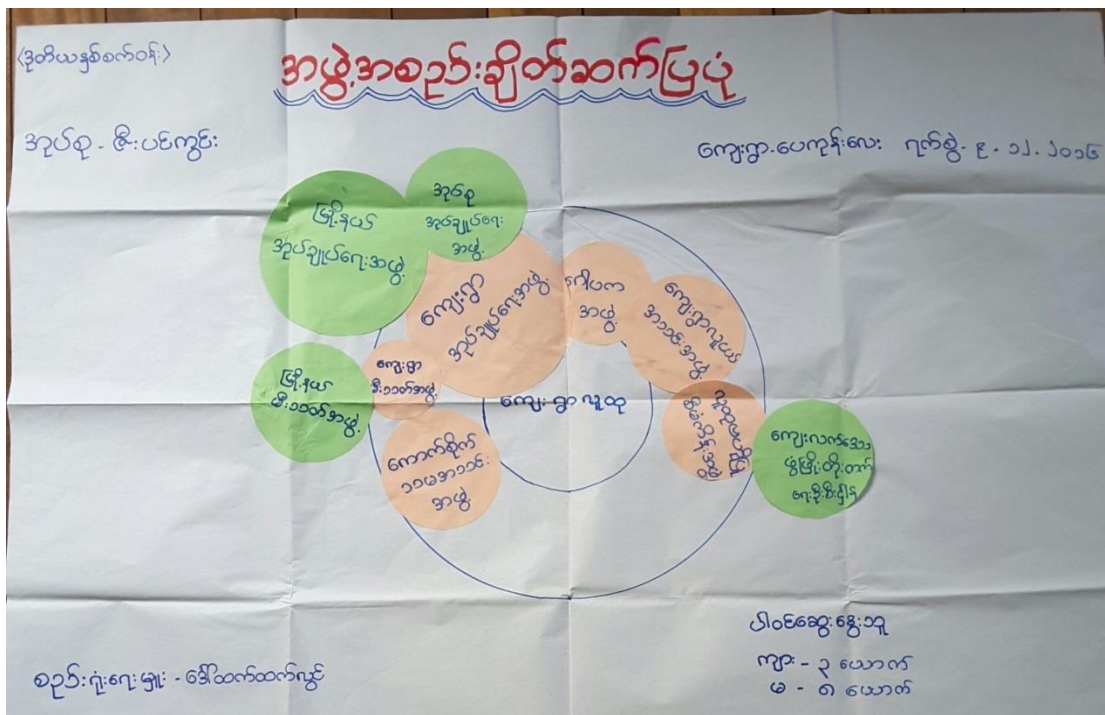 <ဒုတိယနှစ်စက်ဝန်း>
အဖွဲ့အစည်းချိတ်ဆက်ပြပုံ
အုပ်စု - ဇီးပင်ကွင်း
ကျေးရွာ-ပေကုန်းလေး ရက်စွဲ-
အုပ်စု
အုပ်ချုပ်ရေး
အဖွဲ့
မြို့နယ်
အုပ်ချုပ်ရေးအဖွဲ့
ကျေးရွာ
အုပ်ချုပ်ရေးအဖွဲ့
ဂေါပက
အဖွဲ့
ကျေးရွာလူငယ်
အသင်းအဖွဲ့
ကျေးရွာ
မီးသတ်အဖွဲ့
မြို့နယ်
မီးသတ်အဖွဲ့
ကျေးရွာ လူထု
ကောက်စိုက်
သမအသင်း
အဖွဲ့
လူထုဗဟိုပြု
စီမံကိန်းအဖွဲ့
ကျေးလက်ဒေသ
ဖွံ့ဖြိုးတိုးတက်
ရေးဦးစီးဌာန
ပါဝင်ဆွေးနွေးသူ
ကျား - ၃ ယောက်
မ - ၈ ယောက်
စည်းရုံးရေးမှူး - ဒေါ်ထက်ထက်လွင်